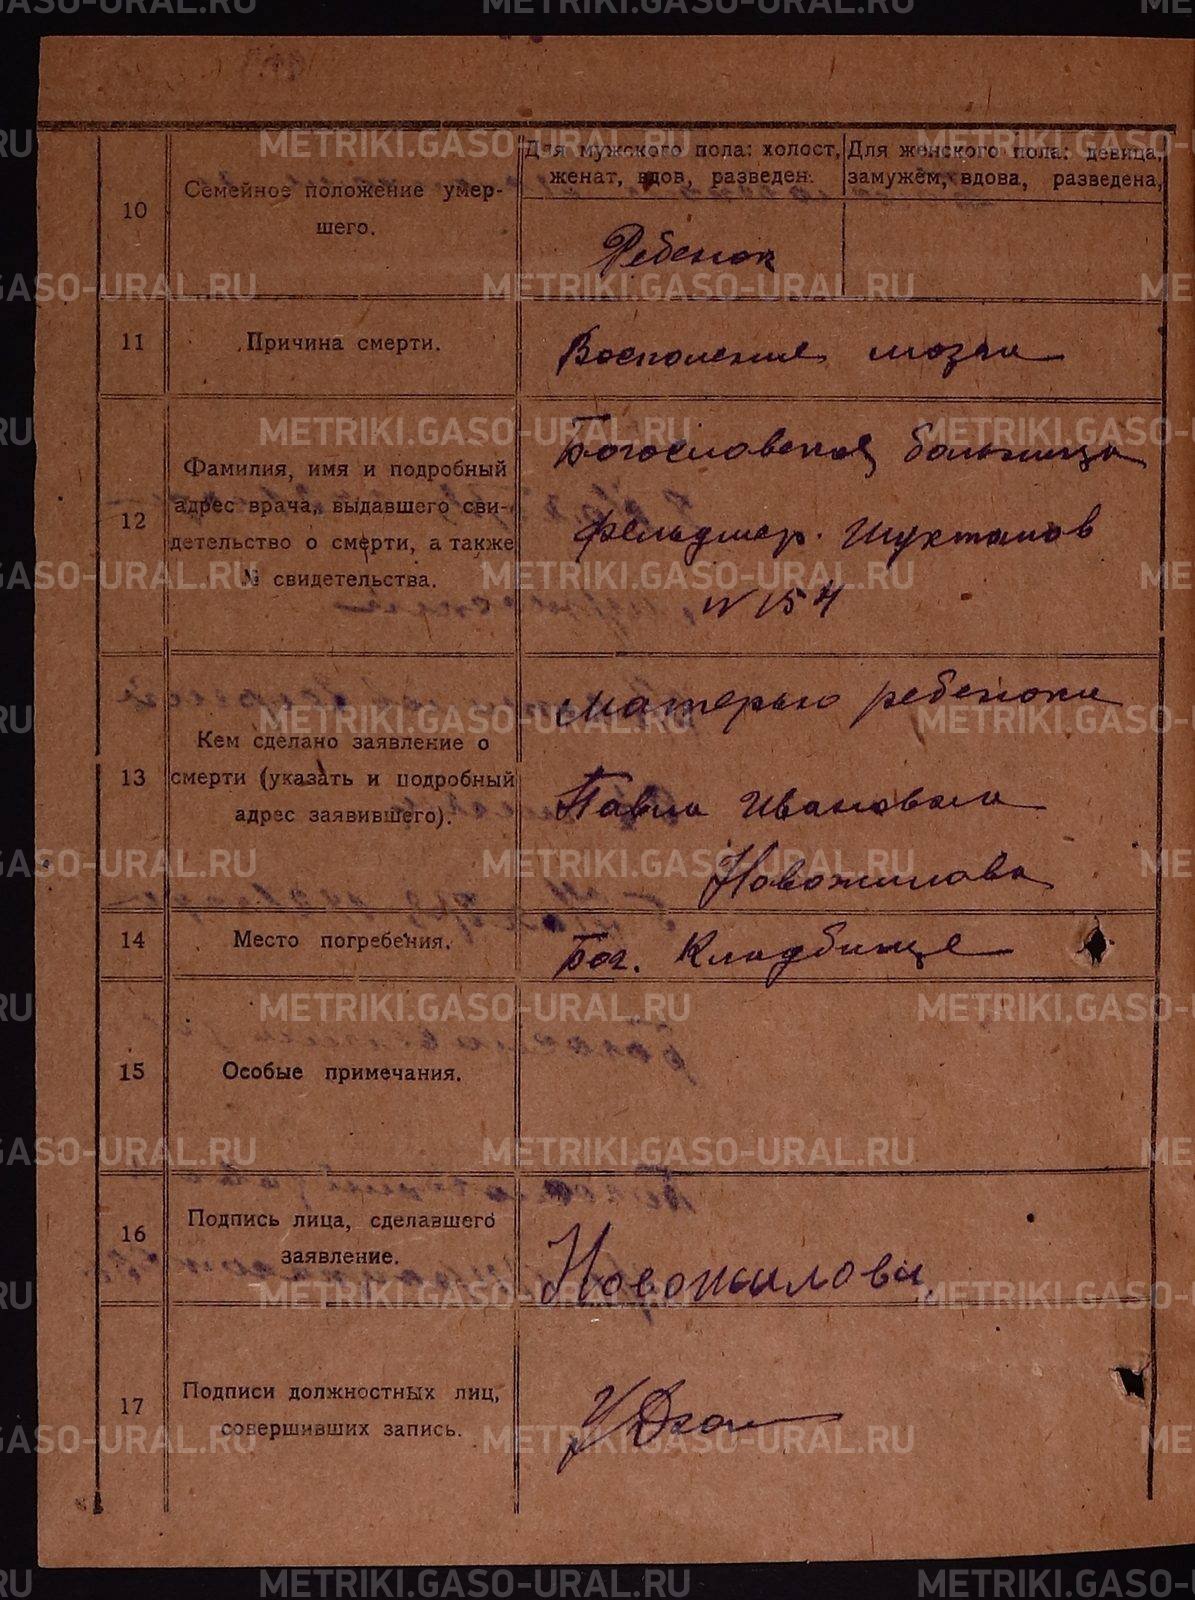 10
Семейное положение умер-
шего.
Для мужского пола: холост,
женат, вдов, разведен.
Для женского пола: девица,
замужем, вдова, разведена,
Ребенок
11
Причина смерти.
Воспаление мозга
12
Фамилия, имя и подробный
адрес врача, выдавшего сви-
детельство о смерти, а также
№ свидетельства.
Богословская больница
Фельдшер. Шуктамов
N 154
13
Кем сделано заявление о
смерти (указать и подробный
адрес заявившего).
Матерью ребенока
Павла Ивановала
Новожилова
14
Место погребения.
Бог. Кладбище
15
Особые примечания.
16
Подпись лица, сделавшего
заявление.
Новожилова
17
Подписи должностных лиц,
совершивших запись.
METRIKI.GASO-URAL.RU